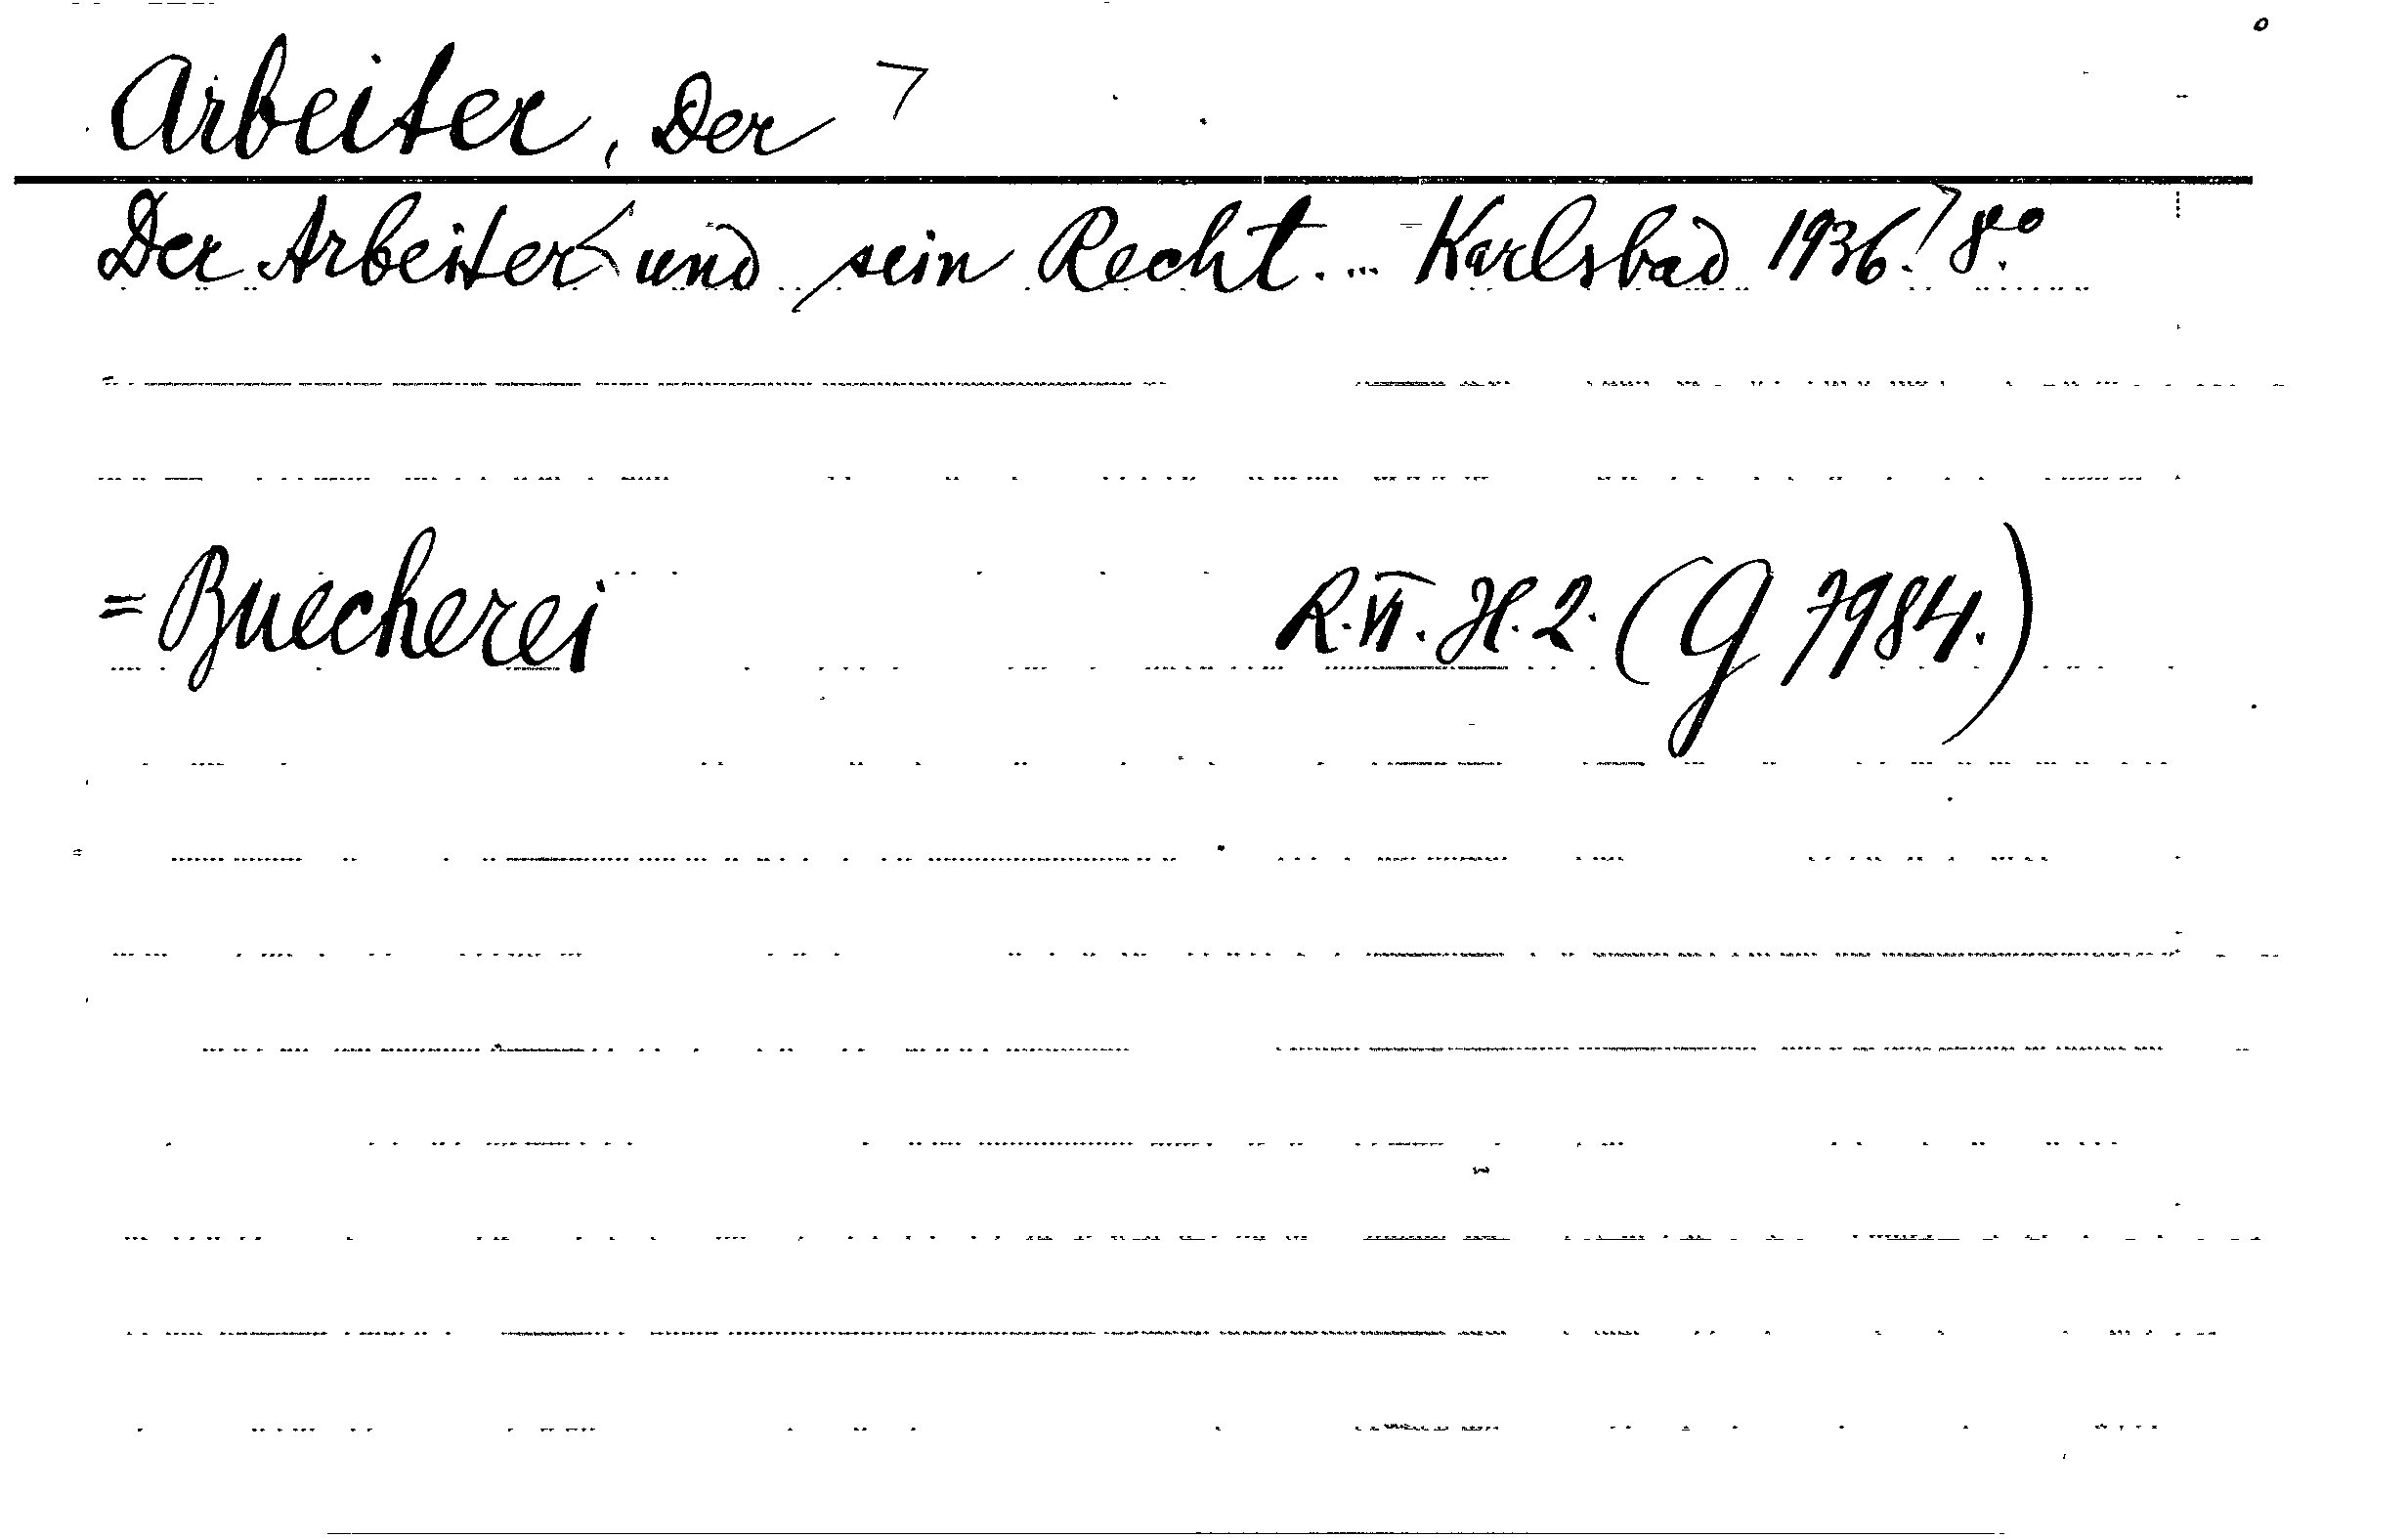 Arbeiter, Der ⌝
Der Arbeiter und sein Recht. ... Karlsbad 1936.⌝ 8.°
= Buecherei R. VI. H. 2. (G 7984.)